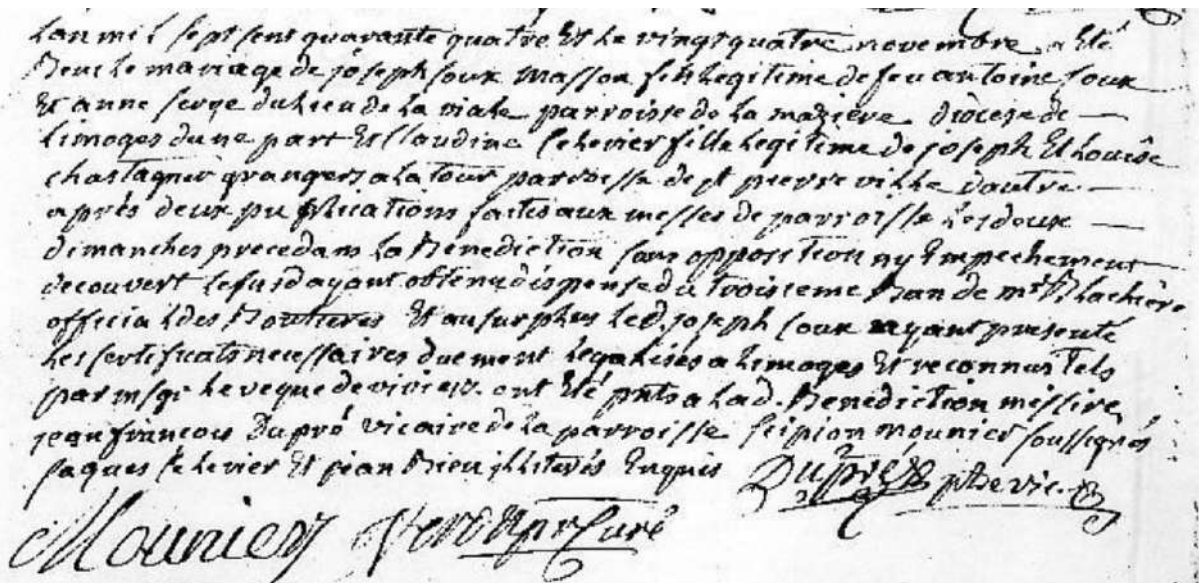 Lan mil sept sent quarante quatre Et Le vingt quatre novembre a Eté
Beni Le mariage de joseph Coux masson fils Legitime de feu antoine Coux
Et anne serge du Lieu de La viale parroisse de La maziere diocese de
Limoges dune part Et Claudine Lehevier fille Legitime de joseph Et Louise
chastagnier grangers a La tour parroisse de st pierre ville dautre
après deux publications faites aux messes de parroisse Les deux
dimanches precedans La Benediction sans opposition ny Empechement
decouvert ayant obtenu dispense du troisieme Ban de mr Blachère
official des Boutieres Et au surplus Le d. joseph Coux ayant presenté
Les certificats necessaires duement Legalisés a Limoges Et reconnus Tels
par msgr Leveque de viviers. ont Eté pnts a Lad. Benediction missire
jean francois Dupré vicaire de La parroisse scipion mounier soussignés
jaques Et illiterés Enquis Dupré ptre vic.
Mounier Curé